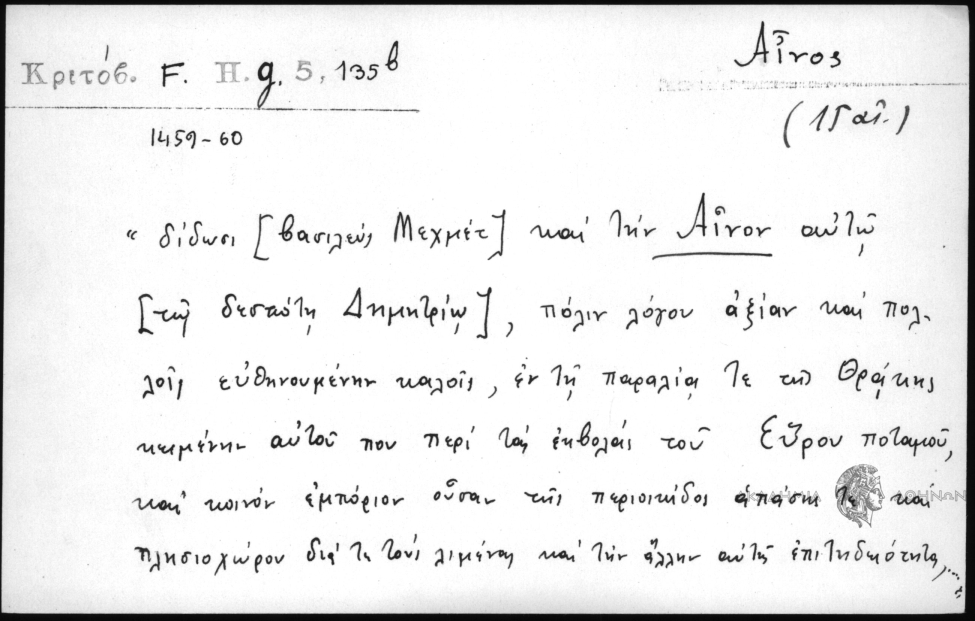 Κριτόβ. F. H. g. 5, 135b
Αἶνος
1459-60
(15 αἰ.)
" δίδωσι [βασιλεύς Μεχμέτ] καί τήν Αἶνον αὐτῷ
[τῷ δεσπότῃ Δημητρίῳ], πόλιν λόγου ἀξίαν καί πολ-
λοῖς εὐθηνουμένην καλοῖς, ἐν τῇ παραλίᾳ τε τῆς Θρᾴκης
κειμένην αὐτοῦ που περί τάς ἐκβολάς τοῦ Εὔρου ποταμοῦ,
καί κοινόν ἐμπόριον οὖσαν τῆς περιοικίδος ἁπάσης τε καί
πλησιοχώρου διά τε τούς λιμένας καί τήν ἄλλην αὐτῆς ἐπιτηδειότητα,...."
ΑΘΗΝΩΝ